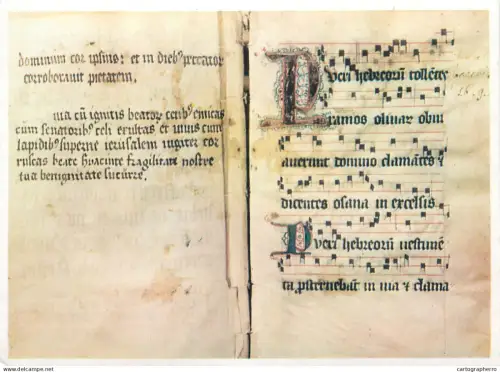 dominum cor ipsius: et in dieb⁹ peccator
corroboravit pietatem.
cum ignitis beator cetib⁹ emicas
cum senatorib⁹ celi exultas et unus cum
lapidib⁹ superne ierusalem iugiter cor
ruscas beate hyacinte fragilitati nostre
tua benignitate sucurre.
Pueri hebreorū tollētes
ramos olivar obvi
averunt domino clamātes &
dicentes osana in excelsis
Pueri hebreorū vestimē
ta p̄sternebāt in via & clama
www.delcampe.net
cartographerro